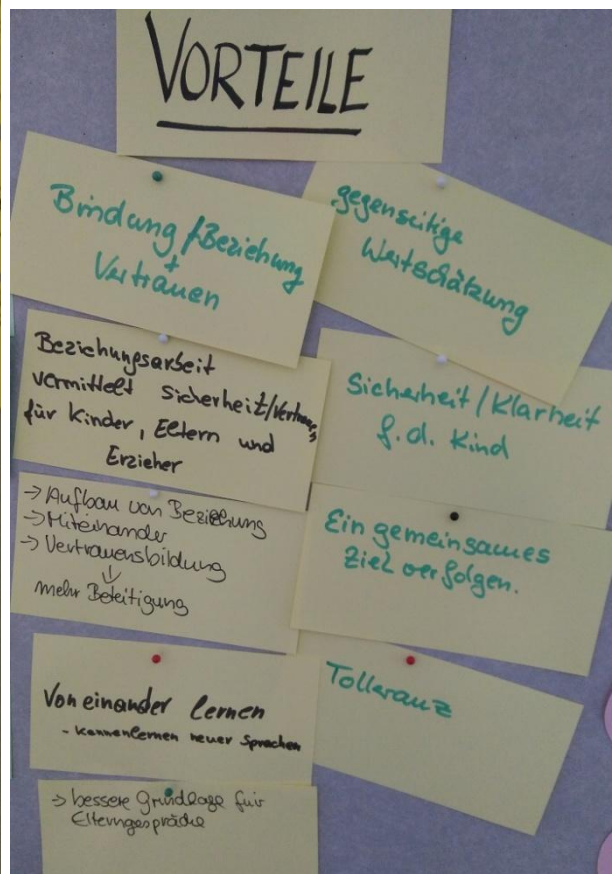 VORTEILE
Bindung/Beziehung
+
Vertrauen
gegenseitige
Wertschätzung
Beziehungsarbeit
vermittelt Sicherheit/Vertrauen
für Kinder, Eltern und
Erzieher
Sicherheit/Klarheit
f. d. Kind
→ Aufbau von Beziehung
→ Miteinander
→ Vertrauensbildung
⇓
mehr Beteiligung
Ein gemeinsames
Ziel verfolgen.
Von einander lernen
- kennenlernen neuer Sprachen
Tolleranz
→ bessere Grundlage für
Elterngespräche